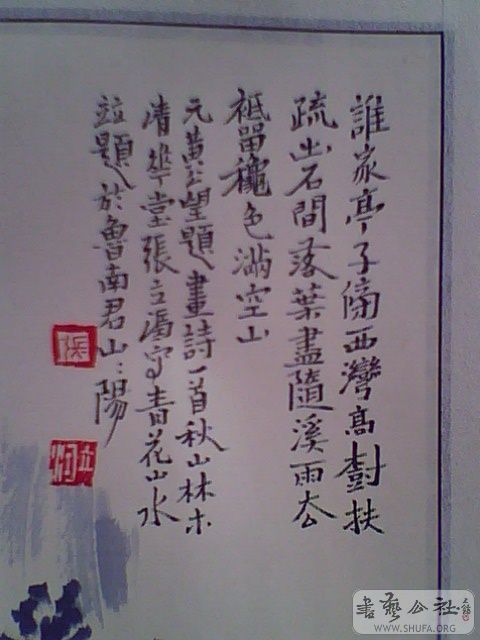 誰家亭子傍西灣高樹扶
疏出石間落葉盡隨溪雨去
祗留穐色滿空山
元黃公望題畫詩一首秋山林木
清華堂張立寫青花山水
竝題於魯南君山之陽
張
立
書藝公社
WWW.SHUFA.ORG